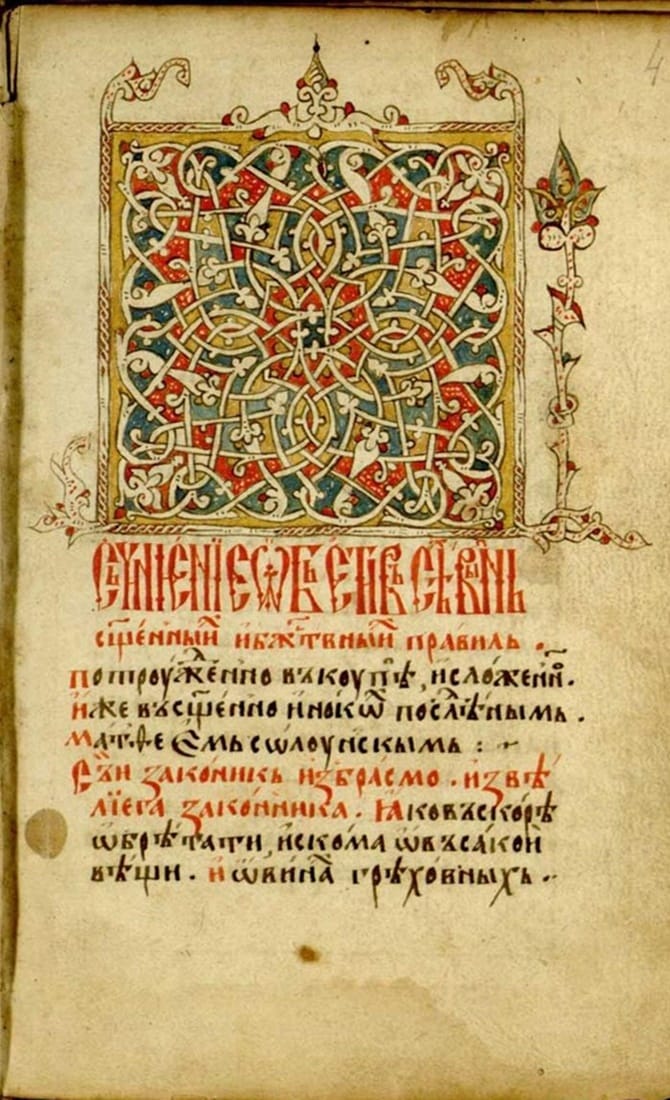 4
Съчиненїе ѡ въсѣхъ винь
сщ҃енныи҆ и бж҃твныи҆ правиль.
потроуж҆енно въкоупѣ, исложен҆но.
иже въсщ҃енно инокѡ҆ послѣ҆нымь.
матѳеѡмь сѡлоунскымь :~
Съи законикь избрасмо. из вѣ
лїега законника. Iаковъскорѣ
ѡбрѣтати, искома ѡвъсакои
вѣщи. и ѡвина҆ грѣховныхь.